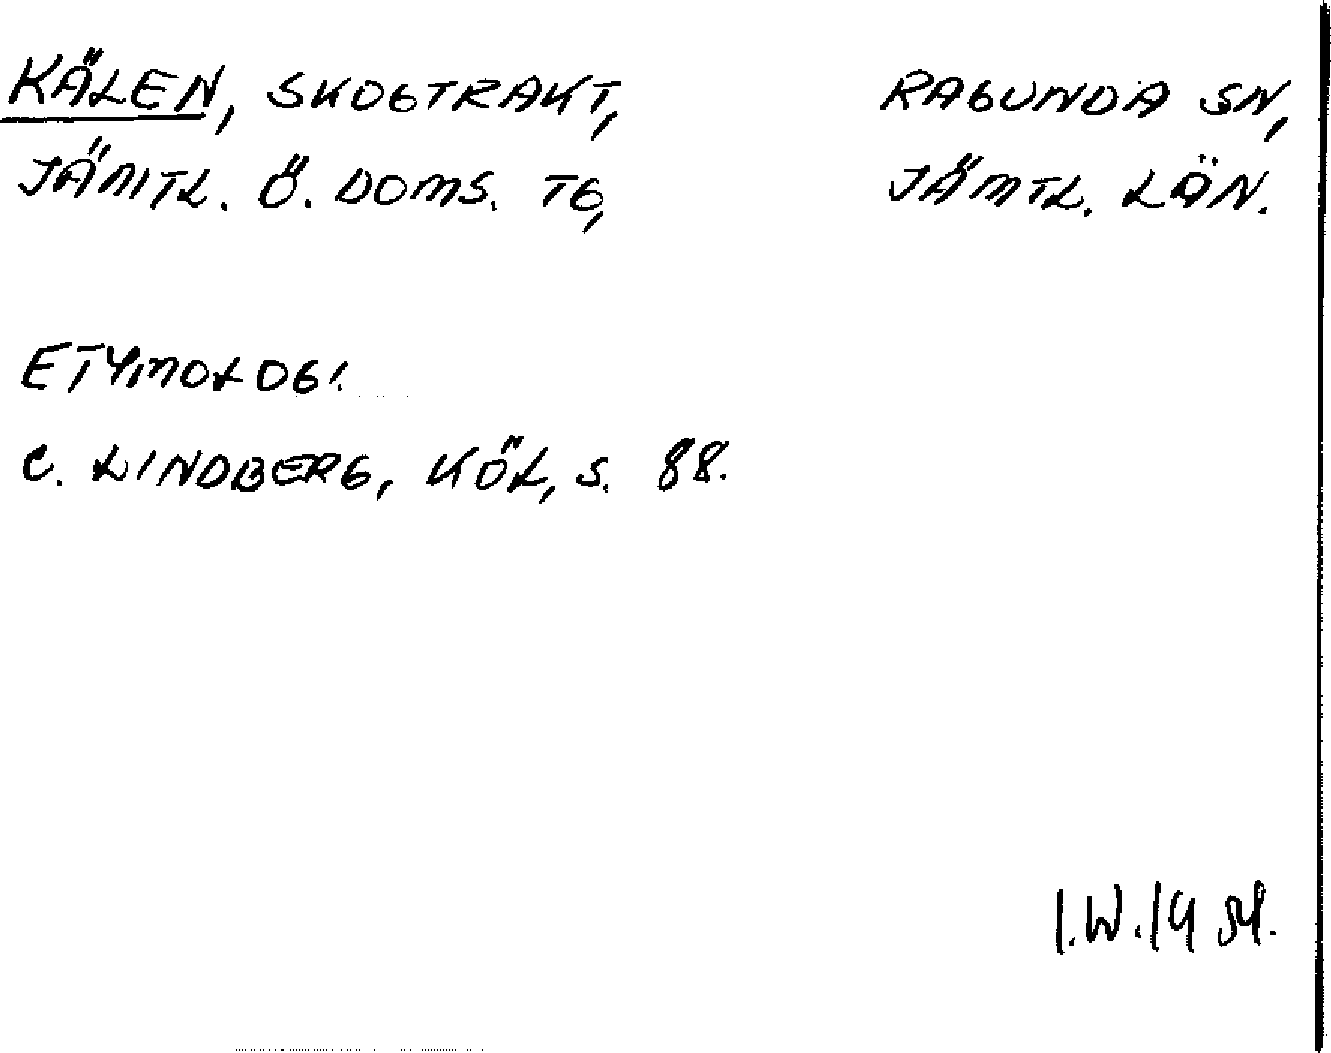 KÄLEN, SKOGTRAKT, RAGUNDA SN,
JÄMTL. Ö. DOMS. TG, JÄMTL. LÄN.
ETYMOLOGI.
C. LINDBERG, KÖL, S. 88.
I.W. 19